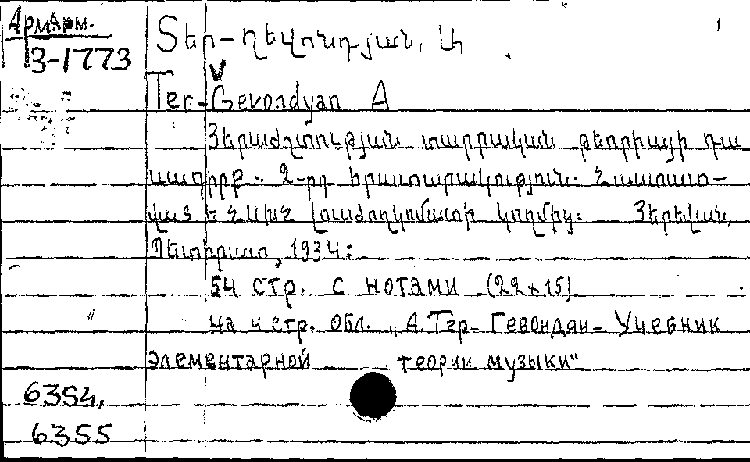 АрмАрм.
3-1773
Տեր-Ղեվոնդյան, Ա
Ter-Gevondyan A
Յերաժշտության տարրական թեորիայի դա
սագիրք. 2-րդ հրատարակություն. Հաստատ-
ված Ե ՀՍԽՀ Լուսժողկոմատի կողմից: Յերեվան,
Պետհրատ, 1934:
54 стр. с нотами (22×15)
На 4 стр. обл. „А. Тер-Гевондян- Учебник
элементарной теории музыки"
6354,
6355